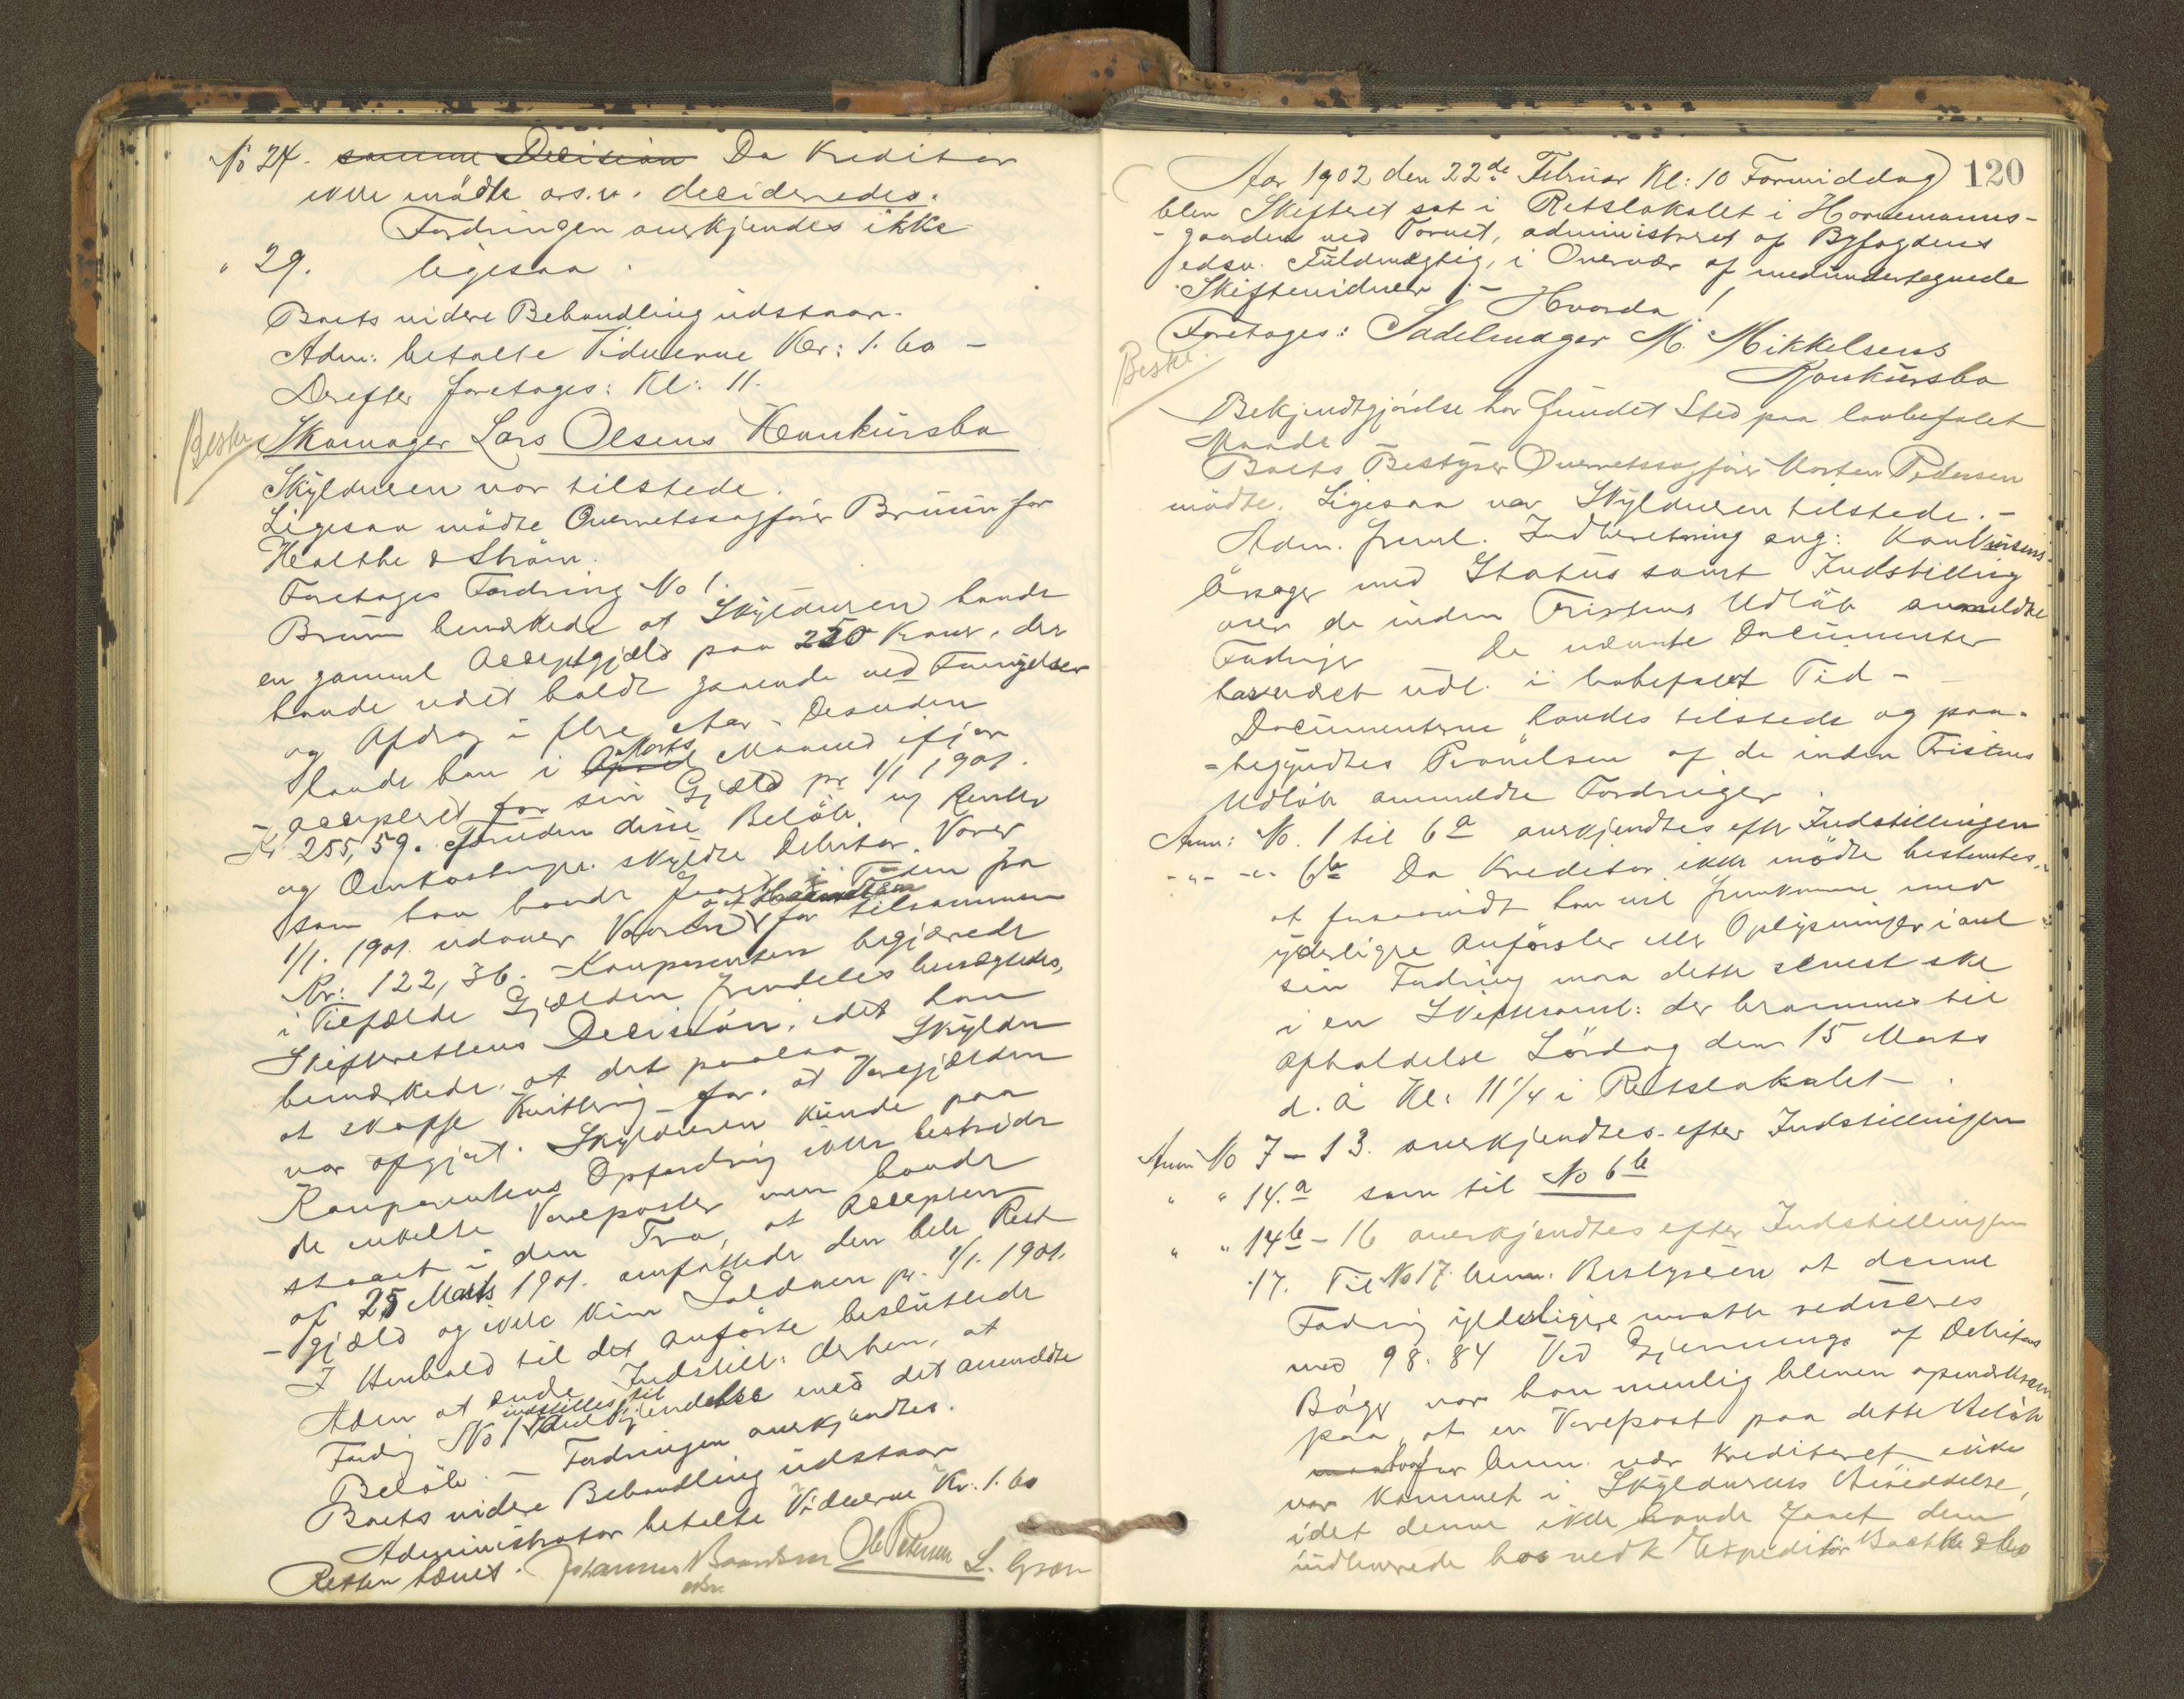 No 24. samme Decision Da Kreditor
ikke mødte o.s.v. decideredes.
Fordringen anerkjendes ikke
" 29. ligesaa.
Boets videre Behandling udstaar.
Adm: betalte Vidnerne Kr: 1.60 -
Derefter foretages: Kl: 11.
Beske
Skomager Lars Olsens Konkursbo
Skyldneren var tilstede.
Ligesaa mødte Overretssagfører Bruun for
Holthe & Strøm.
Foretages Fordring No 1.
Bruun bemærkede at Skyldneren havde
en gammel Acceptgjæld paa 250 Kroner, der
havde været holdt gaaende ved Fornyelser
og Afdrag i flere Aar. Desuden
havde han i April Marts Maaned ifjor
accepteret for sin Gjæld pr 1/1 1901.
Kr 255,59. Foruden disse Beløb og Renter
og Omkostninger skyldte Debitor Varer
som han havde faaet i Tiden fra
1/1. 1901. udover Vaaren for tilsammen
Kr: 122,36. - Komparenten begjærede
i Tilfælde Gjælden fremdeles benægtedes,
Skifterettens Decision, idet han
bemærkede, at det paalaa Skyldn
at skaffe Kvittering for, at Varegjælden
var opgjort. Skyldneren kunde paa
Komparentens Opfordring ikke bestride
de enkelte Vareposter men havde
staaet i den Tro, at Accepten
af 25 Marts 1901. omfattede den hele Rest
- gjæld og ikke kun Saldoen pr. 1/1. 1901.
I Henhold til det anførte besluttede
Adm at ende Indstill: derhen, at
Fordrg No 1 indstilles til Anerkjendelse med det anmeldte
Beløb. - Fordringen anerkjendtes.
Boets videre Behandling udstaar
Administrator betalte Vidnerne Kr. 1.60
Retten hævet. Johannes Ole Petersen L. Gran
120
Aar 1902 den 22de Februar Kl: 10 Formiddag
blev Skifteret sat i Retslokalet i Hornemanns-
- gaarden ved Torvet, administreret af Byfogdens
edsv. Fuldmægtig, i Overvær af medundertegnede
Skiftevidner. - Hvorda!
Foretages: Sadelmager M. Mikkelsens
Konkursbo
Beske.
Bekjendtgjørelse har fundet Sted paa lovbefalet
Maade
Boets Bestyrer Overretssagfører Morten Pedersen
mødte. Ligesaa var Skyldneren tilstede. -
Adm. freml. Indberetning ang: Konkursens
Årsager med Status samt Indstilling
over de inden Fristens Udløb anmeldte
Fordringer De nævnte Documenter
har været udl. i lovbefalet Tid -
Documenterne havdes tilstede og paa-
= begyndtes Prøvelsen af de inden Fristens
Udløb anmeldte Fordringer.
Anm: No. 1 til 6a anerkjendtes efter Indstillingen
-"- -"- 6b Da Kreditor ikke mødte bestemtes,
at forsaavidt han vil fremkomme med
yderligere Anførsler eller Oplysninger i anl
sin Fordring maa dette senest ske
i en Skiftesaml: der berammes til
Afholdelse Lørdag den 15 Marts
d. å Kl: 11 1/4 i Retslokalet.
Anm No 7 - 13. anerkjendtes efter Indstillingen
" " 14.a som til No 6b
" " 14b - 16 anerkjendtes efter Indstillingen
17. Til No 17 bem. Bestyreren at denne
Fordring yderligere maatte reduceres
med 98.84 Ved Gjennemgå af Debitors
Bøger var han nemlig bleven opmærksom
paa, at en Varepost paa dette Beløb
hvorfor Anm. var krediteret ikke
var kommet i Skyldnerens Besiddelse,
idet denne ikke havde faaet dem
udleverede hos vedk Expeditør Bachke & Co